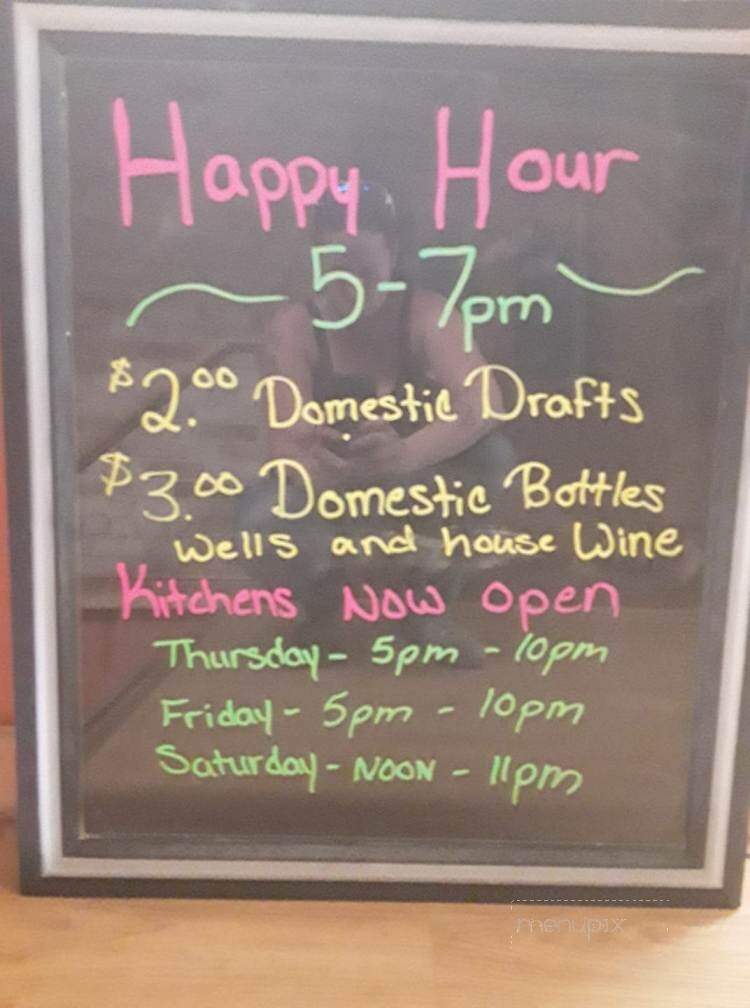 Happy Hour
5-7pm
$2.00 Domestic Drafts
$3.00 Domestic Bottles
Wells and house Wine
Kitchens Now Open
Thursday - 5pm - 10pm
Friday - 5pm - 10pm
Saturday - NOON - 11pm
menupix